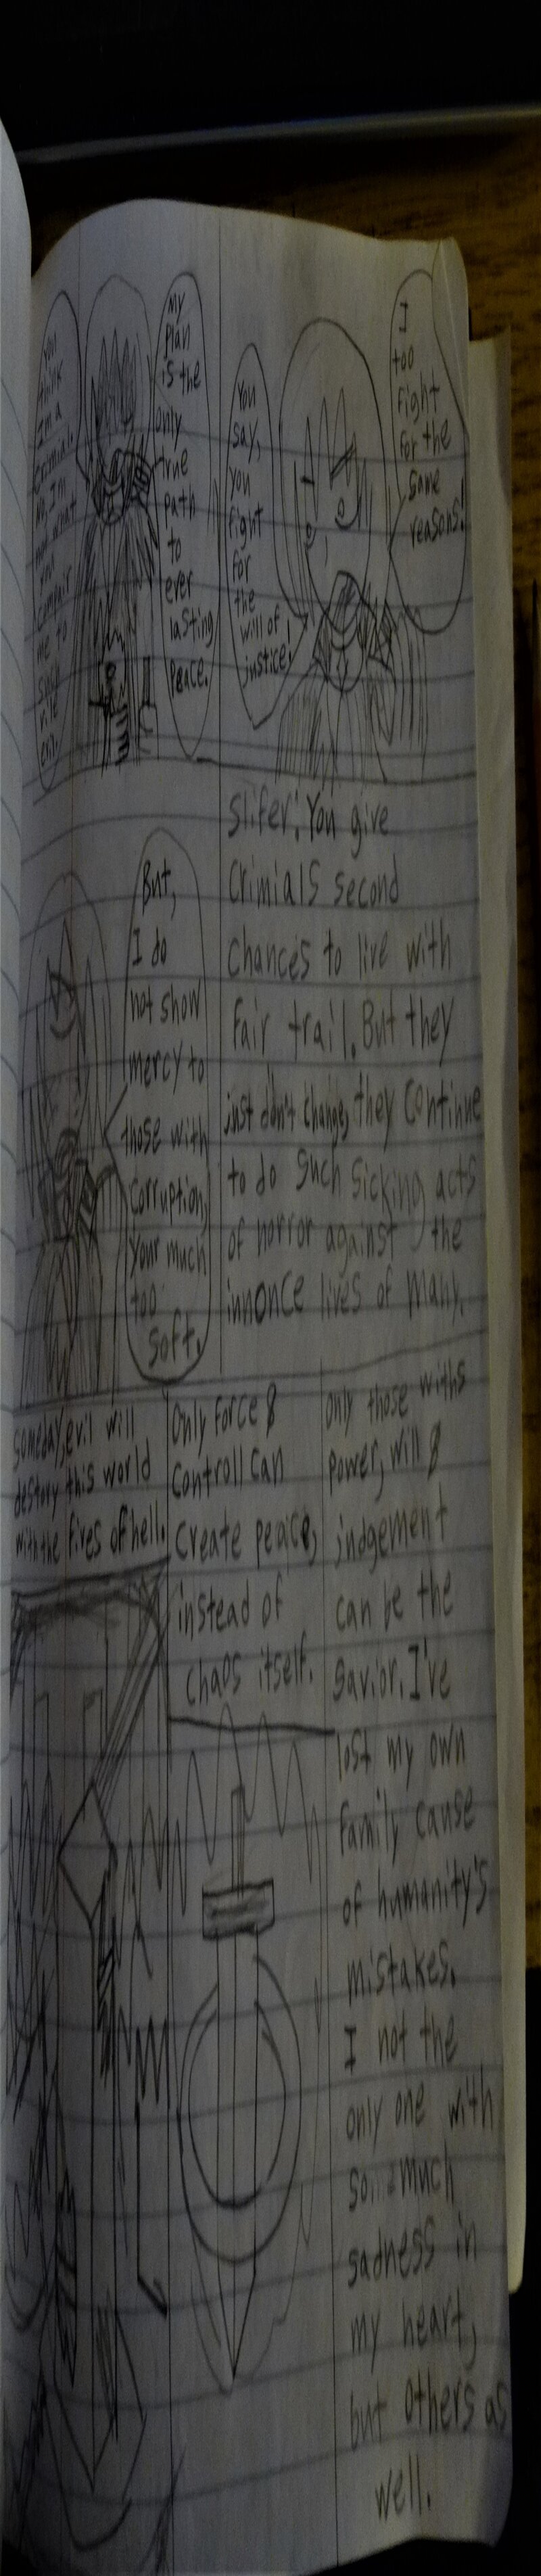 I
too
fight
for the
same
reasons!
You
say,
you
fight
for
the
will of
justice!
My
plan
is the
only
true
path
to
ever
lasting
Peace.
You
think
I'm a
criminal.
I'm
not what
you
compair
me to
such
vile
evil.
Slifer. You give
Crimials second
chances to live with
fair trail. But they
just don't change, they continue
to do such sicking acts
of horror against the
innonce lives of many.
But,
I do
not show
mercy to
those with
corruption,
your much
too
soft.
only those withs
power, will &
judgement
can be the
savior. I've
lost my own
family cause
of humanity's
mistakes.
I not the
only one with
so much
sadness in
my heart,
but others as
well.
Only force &
Controll can
Create peace,
instead of
chaos itself.
someday, evil will
destory this world
with the fires of hell.